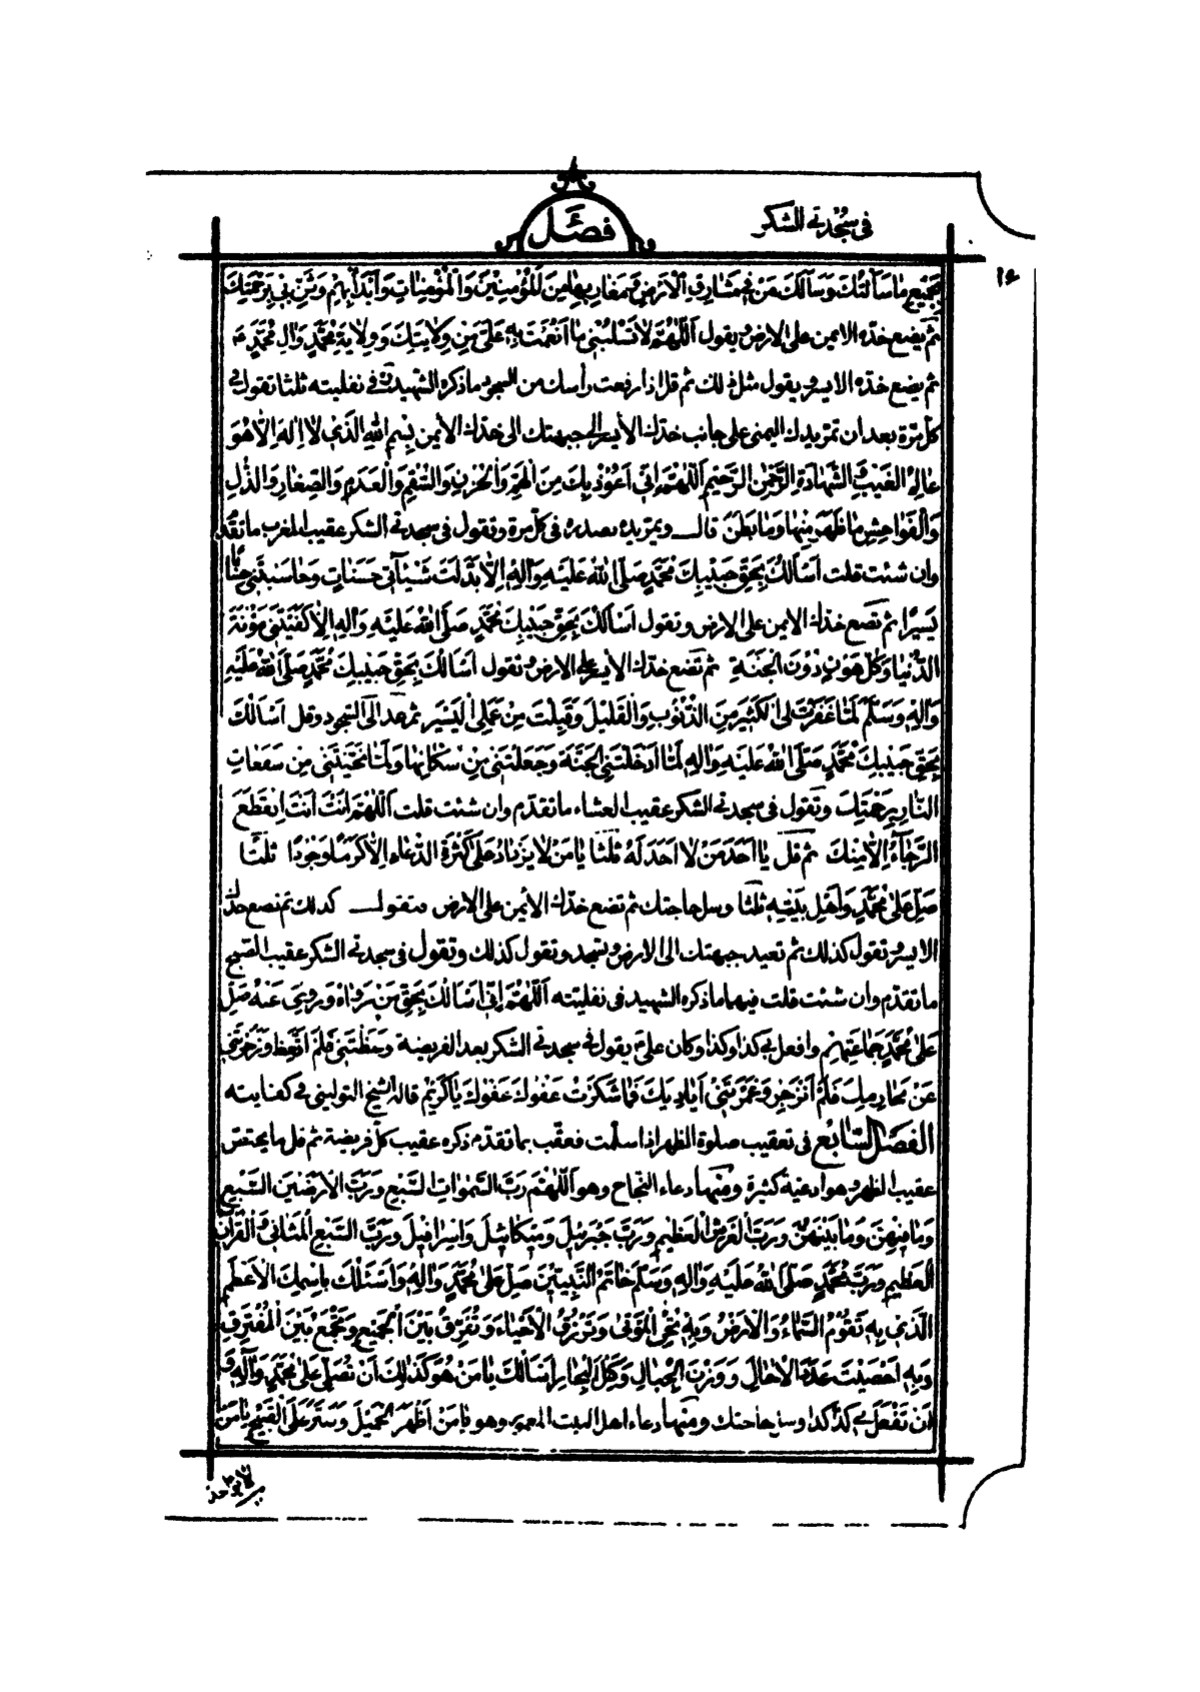 في سجدتي الشكر
فصل
١٤
بِجَميعِ ما سَأَلْتُكَ وَسَأَلَكَ مَنْ في مَشارِقِ الْأَرْضِ وَمَغارِبِها مِنَ الْمُؤْمِنينَ وَالْمُؤْمِناتِ وَابْدَأْ بِهِمْ وَثَنِّ بي بِرَحْمَتِكَ
ثم يضع خده الايمن على الارض ويقول اَللّهُمَّ لا تَسْلُبْني ما اَنْعَمْتَ بِهِ عَلَيَّ مِنْ وِلايَتِكَ وَوِلايَةِ مُحَمَّدٍ وَالِ مُحَمَّدٍ ع
ثم يضع خده الايسر ويقول مثل ذلك ثم قل اذا رفعت رأسك من السجود ما ذكره الشهيد في نفليته ثلثا تقول في
كل مرة بعد ان تمر يدك اليمنى على جانب خدك الأيسر الى جبهتك الى خدك الأيمن بِسْمِ اللهِ الَّذي لا اِلهَ اِلاّ هُوَ
عالِمُ الْغَيْبِ وَالشَّهادَةِ الرَّحْمنُ الرَّحيمُ اَللّهُمَّ اِنّي اَعُوذُ بِكَ مِنَ الْهَمِّ وَالْحُزْنِ وَالسُّقْمِ وَالْعَدَمِ وَالصَّغارِ وَالذُّلِّ
وَالْفَواحِشِ ما ظَهَرَ مِنْها وَما بَطَنَ قال ويمر يده بصدره في كل مرة وتقول في سجدتي الشكر عقيب المغرب ما تقدم
وان شئت قلت اَسْأَلُكَ بِحَقِّ حَبيبِكَ مُحَمَّدٍ صَلَّى اللهُ عَلَيْهِ وَالِهِ اِلاّ بَدَّلْتَ سَيِّئاتي حَسَناتٍ وَحاسَبْتَني حِسابًا
يَسيرًا ثم تضع خدك الايمن على الارض وتقول اَسْأَلُكَ بِحَقِّ حَبيبِكَ مُحَمَّدٍ صَلَّى اللهُ عَلَيْهِ وَالِهِ اِلاّ كَفَيْتَني مَؤُنَةَ
الدُّنْيا وَكُلَّ هَوْلٍ دُونَ الْجَنَّةِ ثم تضع خدك الأيسر على الارض وتقول اَسْأَلُكَ بِحَقِّ حَبيبِكَ مُحَمَّدٍ صَلَّى اللهُ عَلَيْهِ
وَالِهِ وَسَلَّمَ لَمّا غَفَرْتَ لِيَ الْكَثيرَ مِنَ الذُّنُوبِ وَالْقَليلَ وَقَبِلْتَ مِنْ عَمَلِيَ الْيَسيرَ ثم عد الى السجود وقل اَسْأَلُكَ
بِحَقِّ حَبيبِكَ مُحَمَّدٍ صَلَّى اللهُ عَلَيْهِ وَالِهِ لَمّا اَدْخَلْتَنِي الْجَنَّةَ وَجَعَلْتَني مِنْ سُكّانِها وَلَمّا نَجَّيْتَني مِنْ سَفَعاتِ
النّارِ بِرَحْمَتِكَ وتقول في سجدتي الشكر عقيب العشاء ما تقدم وان شئت قلت اَللّهُمَّ اَنْتَ اَنْتَ اِنْقَطَعَ
الرَّجاءُ اِلاّ مِنْكَ ثم قل يا اَحَدَ مَنْ لا اَحَدَ لَهُ ثلثا يا مَنْ لا يَزيدُهُ كَثْرَةُ الدُّعاءِ اِلاّ كَرَمًا وَجُودًا ثلثا
صَلِّ عَلى مُحَمَّدٍ وَاَهْلِ بَيْتِهِ ثلثا وسل حاجتك ثم تضع خدك الأيمن على الارض وتقول كذلك ثم تضع خدك
الايسر وتقول كذلك ثم تعيد جبهتك الى الارض وتسجد وتقول كذلك وتقول في سجدتي الشكر عقيب الصبح
ما تقدم وان شئت قلت فيهما ما ذكره الشهيد في نفليته اَللّهُمَّ اِنّي اَسْأَلُكَ بِحَقِّ مَنْ رَواهُ وَرُوِيَ عَنْهُ صَلِّ
عَلى مُحَمَّدٍ جَماعَتِهِمْ وافعل بي كذا وكذا وكان علي ع يقول في سجدتي الشكر بعد الفريضة وَعَظْتَني فَلَمْ اَتَّعِظْ وَزَجَرْتَني
عَنْ مَحارِمِكَ فَلَمْ اَنْزَجِرْ وَغَمَرْتَني اَياديكَ فَما شَكَرْتُ عَفْوَكَ عَفْوَكَ يا كَريمُ قاله الشيخ التوليني في كفايته
الفصل السابع في تعقيب صلوة الظهر اذا سلمت فعقب بما تقدم ذكره عقيب كل فريضة ثم قل ما يختص
عقيب الظهر وهو ادعية كثيرة ومنها دعاء النجاح وهو اَللّهُمَّ رَبَّ السَّمواتِ السَّبْعِ وَرَبَّ الْاَرَضينَ السَّبْعِ
وَما فيهِنَّ وَما بَيْنَهُنَّ وَرَبَّ الْعَرْشِ الْعَظيمِ وَرَبَّ جَبْرَئيلَ وَميكائيلَ وَاِسْرافيلَ وَرَبَّ السَّبْعِ الْمَثاني وَالْقُرْانِ
الْعَظيمِ وَرَبَّ مُحَمَّدٍ صَلَّى اللهُ عَلَيْهِ وَالِهِ وَسَلَّمَ خاتَمِ النَّبِيّينَ صَلِّ عَلى مُحَمَّدٍ وَالِهِ وَاَسْئَلُكَ بِاسْمِكَ الْاَعْظَمِ
الَّذي بِهِ تَقُومُ السَّماءُ وَالْاَرْضُ وَبِهِ تُحْيِي الْمَوْتى وَتَرْزُقُ الْاَحْياءَ وَتُفَرِّقُ بَيْنَ الْجَميعِ وَتَجْمَعُ بَيْنَ الْمُفْتَرِقِ
وَبِهِ اَحْصَيْتَ عَدَدَ الْاجالِ وَوَزْنَ الْجِبالِ وَكَيْلَ الْبِحارِ اَسْأَلُكَ يا مَنْ هُوَ كَذلِكَ اَنْ تُصَلِّيَ عَلى مُحَمَّدٍ وَالِهِ وَ
اَنْ تَفْعَلَ بي كذا كذا وسل حاجتك ومنها دعاء اهل البيت المعمور وهو يا مَنْ اَظْهَرَ الْجَميلَ وَسَتَرَ عَلَيَّ الْقَبيحَ يا مَنْ